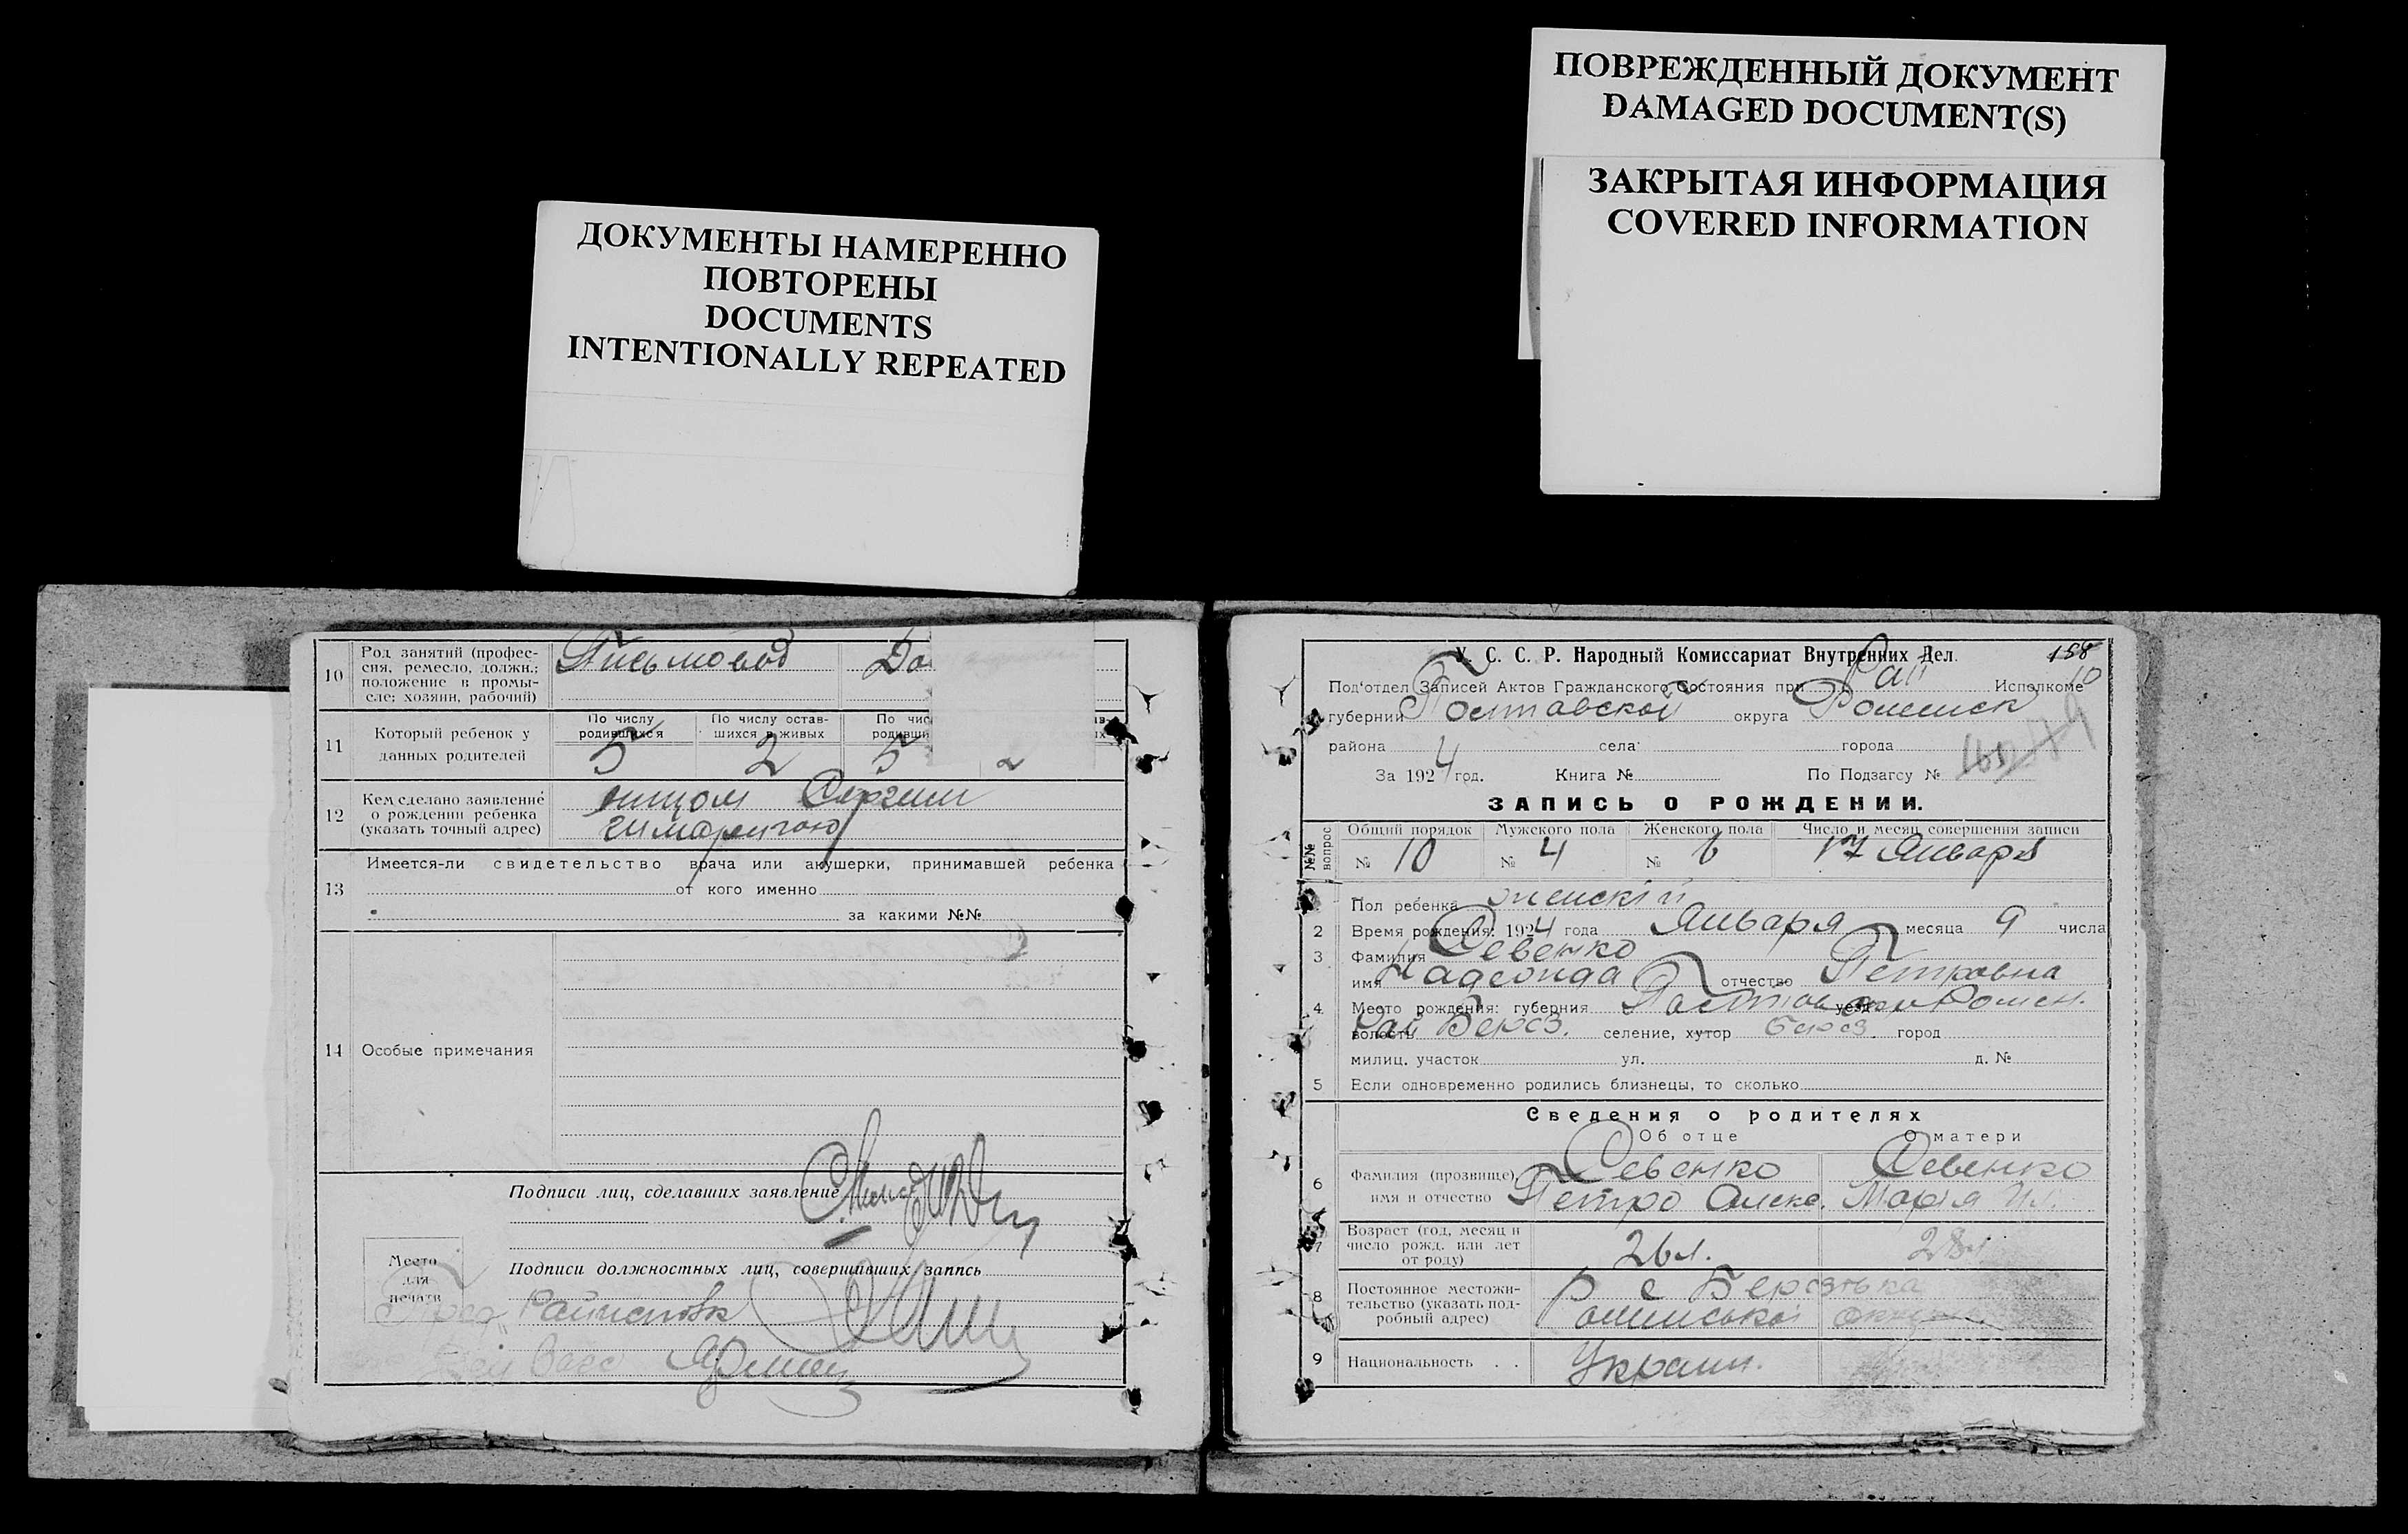 ПОВРЕЖДЕННЫЙ ДОКУМЕНТ
DAMAGED DOCUMENT(S)
ЗАКРЫТАЯ ИНФОРМАЦИЯ
COVERED INFORMATION
ДОКУМЕНТЫ НАМЕРЕННО
ПОВТОРЕНЫ
DOCUMENTS
INTENTIONALLY REPEATED
10 Род занятий (профес-
сия, ремесло, должн.;
положение в промы-
сле; хозяин, рабочий)
Письмовод
11 Который ребенок у
данных родителей
По числу
родившихся
5
По числу остав-
шихся в живых
2
По чис
родивши
5
2
12 Кем сделано заявление
о рождении ребенка
(указать точный адрес)
13 Имеется-ли свидетельство врача или акушерки, принимавшей ребенка
от кого именно
за какими №№
14 Особые примечания
Подписи лиц, сделавших заявление
Место
для
печати
Подписи должностных лиц, совершивших запись
У. С. С. Р. Народный Комиссариат Внутренних Дел.
158
Под'отдел Записей Актов Гражданского Состояния при Рай Исполкоме
губернии Полтавской округа Роменск
района села города
За 1924 год. Книга № По Подзагсу №
ЗАПИСЬ О РОЖДЕНИИ.
№№ вопрос
Общий порядок Мужского пола Женского пола Число и месяц совершения записи
№ 10 № 4 № 6 17 Января
Пол ребенка женскій
2 Время рождения: 1924 года Января месяца 9 числа
3 Фамилия Левенко
имя Надежда отчество Петровна
4 Место рождения: губерния Полтавск уезд Ромен.
волость Рай Берез. селение, хутор Берез. город
милиц. участок ул. д. №
5 Если одновременно родились близнецы, то сколько
Сведения о родителях
Об отце О матери
6 Фамилия (прозвище), Левенко Левенко
имя и отчество Петро Алекс. Марія
7 Возраст (год, месяц и
число рожд. или лет
от роду)
26 л. 28 л
8 Постоянное местожи-
тельство (указать под-
робный адрес)
с Березівка
Роменської округи
9 Национальность . . Украин.